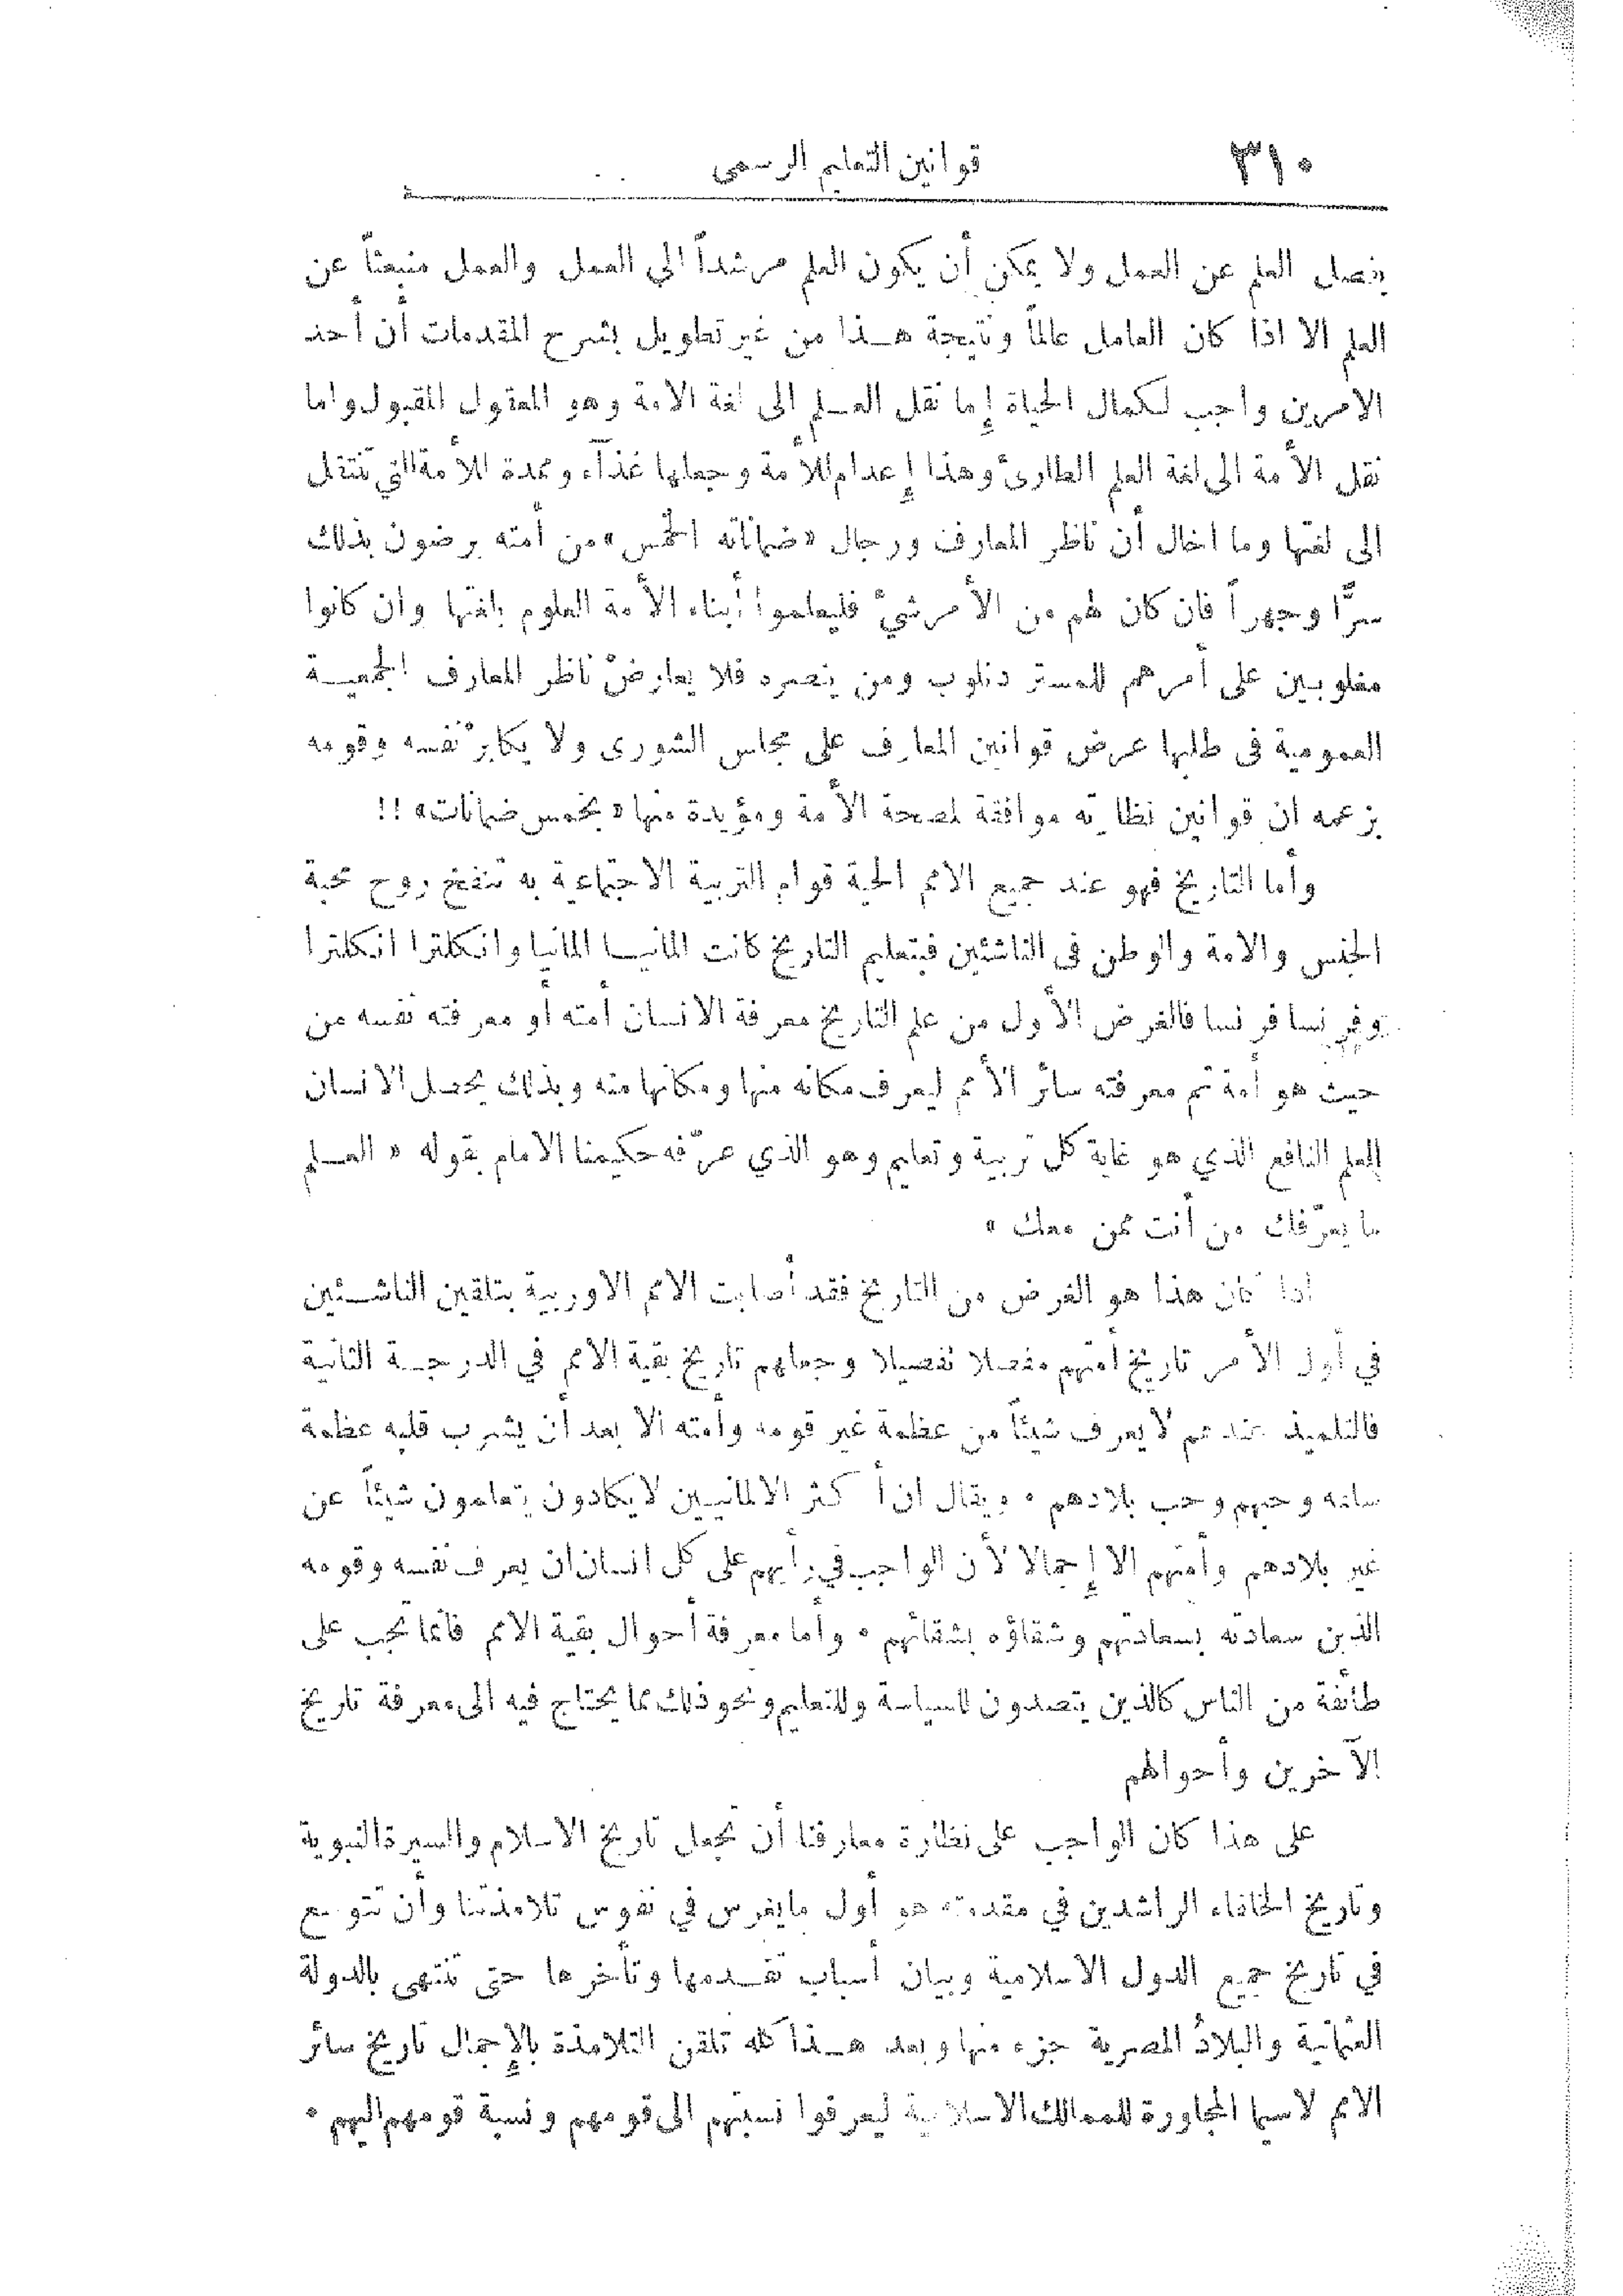 ٣١٠
قوانين التعليم الرسمى
يفصل العلم عن العمل ولا يمكن أن يكون العلم مرشداً الي العمل والعمل منبعثاً عن
العلم الا اذا كان العامل عالماً ونتيجة هـذا من غير تطويل بشرح المقدمات أن أحد
الامرين واجب لكمال الحياة إما نقل العـلم الى لغة الامة وهو المعقول المقبول واما
نقل الأمة الى لغة العلم الطارئ وهذا إعدام للأمة وجعلها غذآء ومدة للأمة التي تنتقل
الى لغتها وما اخال أن ناظر المعارف ورجال «ضماناته الخمس» من أمته يرضون بذلك
سرًّا وجهراً فان كان لهم من الأمر شيءٌ فليعلموا أبناء الأمة العلوم بلغتها وان كانوا
مغلوبين على أمرهم للمستر دنلوب ومن ينصره فلا يعارضْ ناظر المعارف الجمعيـة
العمومية فى طلبها عرض قوانين المعارف على مجلس الشورى ولا يكابرْ نفسه وقومه
بزعمه ان قوانين نظارته موافقة لمصلحة الأمة ومؤيدة منها «بخمس ضمانات» !!
وأما التاريخ فهو عند جميع الامم الحية قوام التربية الاجتماعية به تنفخ روح محبة
الجنس والامة والوطن فى الناشئين فبتعليم التاريخ كانت المانيـا المانيا وانكلترا انكلترا
وفرنسا فرنسا فالغرض الأول من علم التاريخ معرفة الانسان أمته أو معرفته نفسه من
حيث هو أمة ثم معرفته سائر الأمم ليعرف مكانه منها ومكانها منه وبذلك يحصل الانسان
العلم النافع الذي هو غاية كل تربية وتعليم وهو الذي عرّفه حكيمنا الامام بقوله «العـلم
ما يعرّفك من أنت ممن معك»
اذا كان هذا هو الغرض من التاريخ فقد أصابت الامم الاوربية بتلقين الناشـئين
في أول الأمر تاريخ أمتهم مفصلا تفصيلا وجعلهم تاريخ بقية الامم في الدرجـة الثانية
فالتلميذ عندهم لا يعرف شيئاً من عظمة غير قومه وأمته الا بعد أن يشرب قلبه عظمة
سلفه وحبهم وحب بلادهم ٠ ويقال ان أكثر الالمانيـين لا يكادون يتعلمون شيئاً عن
غير بلادهم وأمتهم الا إجمالا لأن الواجب في رأيهم على كل انسان ان يعرف نفسه وقومه
الذين سعادته بسعادتهم وشقاؤه بشقائهم ٠ وأما معرفة أحوال بقية الامم فانما تجب على
طائفة من الناس كالذين يتصدون للسياسة وللتعليم ونحو ذلك مما يحتاج فيه الى معرفة تاريخ
الآخرين وأحوالهم
على هذا كان الواجب على نظارة معارفنا أن تجعل تاريخ الاسلام والسيرة النبوية
وتاريخ الخلفاء الراشدين في مقدمته هو أول ما يغرس في نفوس تلامذتنا وأن تتوسع
في تاريخ جميع الدول الاسلامية وبيان أسباب تقـدمها وتأخرها حتى تنتهى بالدولة
العثمانية والبلاد المصرية جزء منها وبعد هـذا كله تلقن التلامذة بالإجمال تاريخ سائر
الامم لاسيما المجاورة للممالك الاسلامية ليعرفوا نسبتهم الى قومهم ونسبة قومهم اليهم ٠